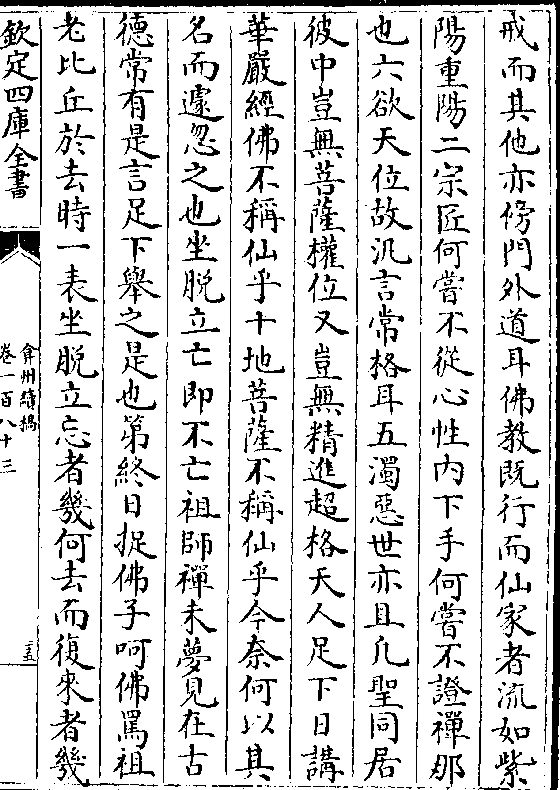 戒而其他亦傍門外道耳佛教既行而仙家者流如紫
陽重陽二宗匠何嘗不從心性内下手何嘗不證禪那
也六欲天位故汎言常格耳五濁惡世亦且凡聖同居
彼中豈無菩薩權位又豈無精進超格天人足下日講
華嚴經佛不稱仙乎十地菩薩不稱仙乎今奈何以其
名而遽忽之也坐脱立亡即不亡祖師禪未夢見在古
德常有是言足下舉之是也第終日捉佛子呵佛罵祖
老比丘於去時一表坐脱立忘者幾何去而復來者幾
欽定四庫全書
弇州續稿
卷一百八十三
五